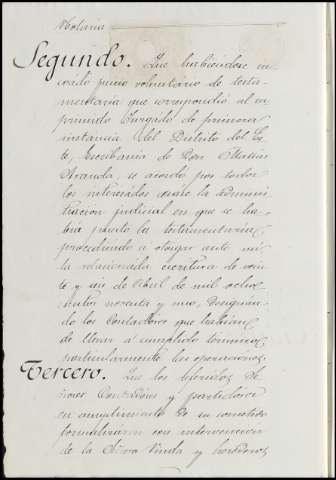 Notaria
Segundo. Que habiendose in
coado juicio voluntario de testa
mentaria que correspondió al su
primido Juzgado de primera
instancia del Distrito del Es
te, Escribania de Don Matias
Aranda, se acordó por todos
los interesados cesara la adminis
tracion judicial en que se ha
bia puesto la testamentaria
procediendo a otorgar ante mi
la relacionada escritura de vein
te y seis de Abril de mil ocho
cientos noventa y uno, designan
do los Contadores que habian
de llevar a cumplido termino
particularmente las operaciones.
Tercero. Que los referidos Se
ñores Contadores y partidores
en cumplimiento de su cometido
formalizaron con intervencion
de la Señora Viuda y herederos